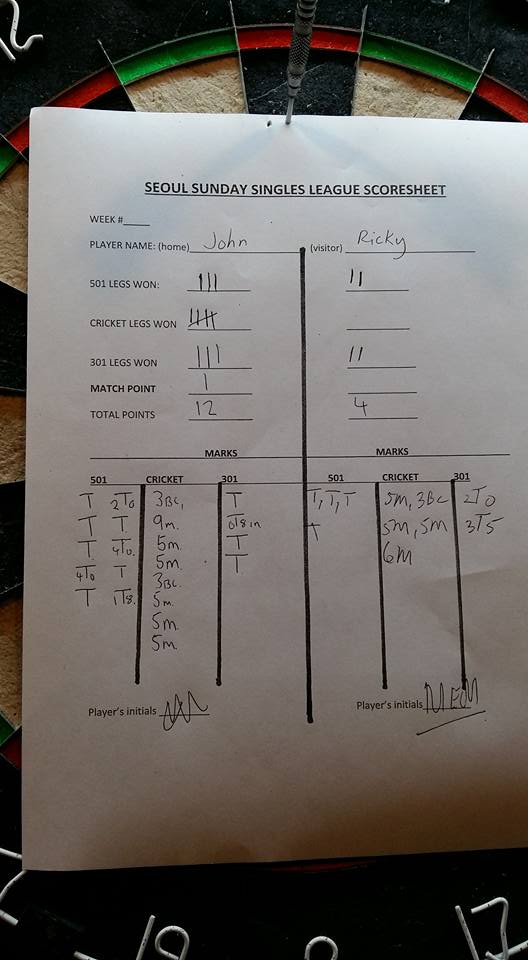 12
SEOUL SUNDAY SINGLES LEAGUE SCORESHEET
WEEK #____
PLAYER NAME: (home) John (visitor) Ricky
501 LEGS WON: ||| ||
CRICKET LEGS WON 卌
301 LEGS WON ||| ||
MATCH POINT 1
TOTAL POINTS 12 4
MARKS MARKS
501 CRICKET 301 501 CRICKET 301
T 2T0 3BC, T T, T, T 5M, 3BC 2T0
T T 9m. 6T8 in T 5M, 5M 3T5
T 4T0. 5m T 6M
4T0 T 5m. T
T 1T8. 3BC.
5m.
5m.
5m.
Player's initials Player's initials
19 17